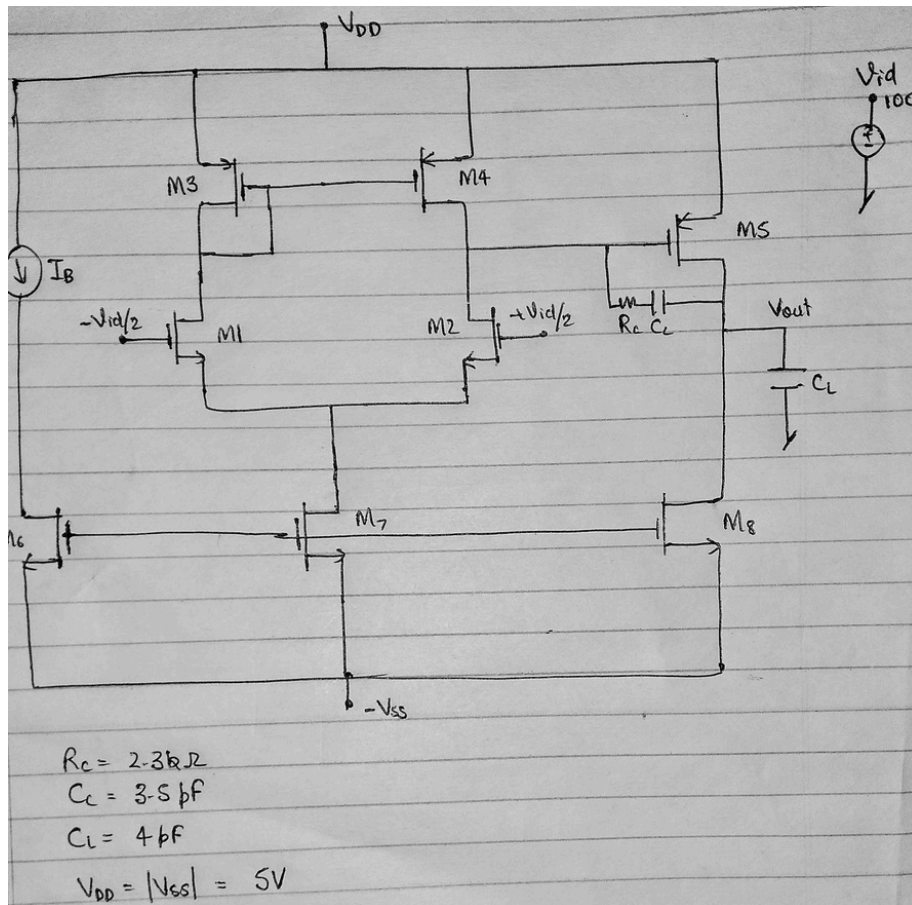 VDD
Vid
100
M3
M4
M5
IB
-Vid/2
M1
M2
+Vid/2
Rc CL
Vout
CL
M7
M8
-Vss
Rc = 2.3kΩ
Cc = 3.5 pf
CL = 4 pf
VDD = |Vss| = 5V